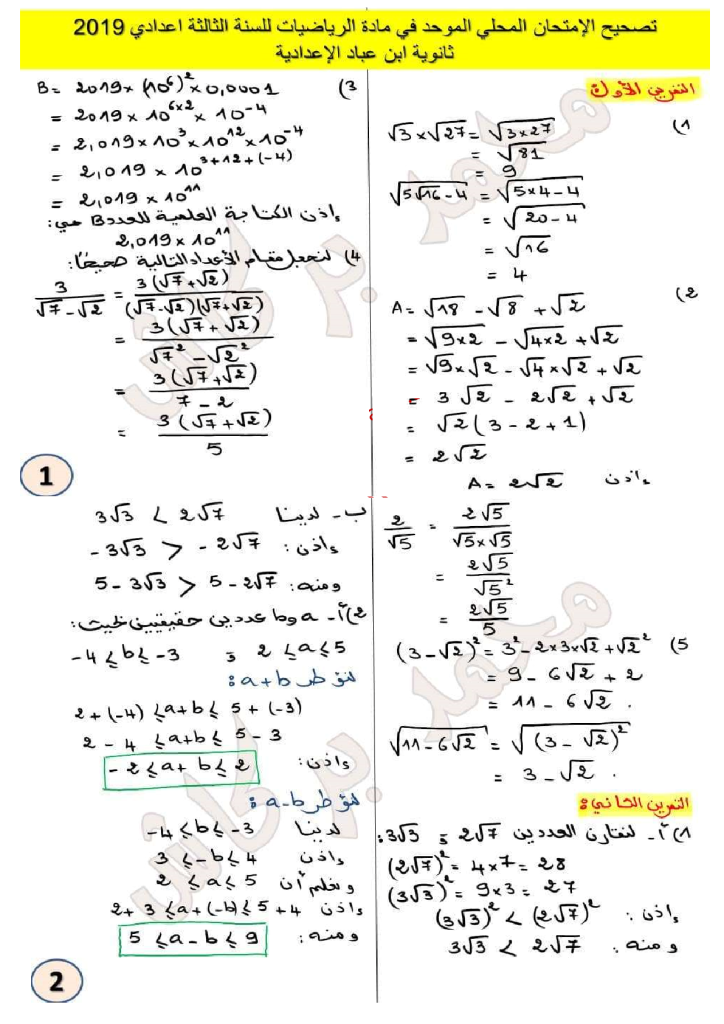 تصحيح الإمتحان المحلي الموحد في مادة الرياضيات للسنة الثالثة اعدادي 2019
ثانوية ابن عباد الإعدادية
التمرين الأول:
1) √3×√27 = √(3×27)
= √81
= 9
√(5√16 - 4) = √(5×4-4)
= √(20-4)
= √16
= 4
2) A = √18 - √8 + √2
= √(9×2) - √(4×2) + √2
= √9×√2 - √4×√2 + √2
= 3√2 - 2√2 + √2
= √2(3-2+1)
= 2√2
إذن A = 2√2
3) B = 2019×(10⁶)²×0,0001
= 2019×10⁶ˣ²×10⁻⁴
= 2,019×10³×10¹²×10⁻⁴
= 2,019×10³⁺¹²⁺⁽⁻⁴⁾
= 2,019×10¹¹
إذن الكتابة العلمية للعدد B هي:
2,019×10¹¹
4) لنجعل مقام الأعداد التالية صحيحًا:
3/(√7-√2) = 3(√7+√2)/((√7-√2)(√7+√2))
= 3(√7+√2)/(√7²-√2²)
= 3(√7+√2)/(7-2)
= 3(√7+√2)/5
1
2/√5 = 2√5/(√5×√5)
= 2√5/√5²
= 2√5/5
5) (3-√2)² = 3²-2×3×√2+√2²
= 9 - 6√2 + 2
= 11 - 6√2 .
√(11-6√2) = √((3-√2)²)
= 3-√2 .
التمرين الثاني:
1) أ- لنقارن العددين 2√7 و 3√3:
(2√7)² = 4×7 = 28
(3√3)² = 9×3 = 27
إذن: (3√3)² < (2√7)²
ومنه: 3√3 < 2√7
ب- لدينا 3√3 < 2√7
إذن: -3√3 > -2√7
ومنه: 5-3√3 > 5-2√7
2) أ- a و b عددين حقيقيين بحيث:
2 ≤ a ≤ 5 و -4 ≤ b ≤ -3
لنؤطر a+b:
2+(-4) ≤ a+b ≤ 5+(-3)
2-4 ≤ a+b ≤ 5-3
إذن: -2 ≤ a+b ≤ 2
لنؤطر a-b:
لدينا -4 ≤ b ≤ -3
إذن 3 ≤ -b ≤ 4
ونعلم أن 2 ≤ a ≤ 5
إذن 2+3 ≤ a+(-b) ≤ 5+4
ومنه: 5 ≤ a-b ≤ 9
2
محمد بركاش
محمد بركاش